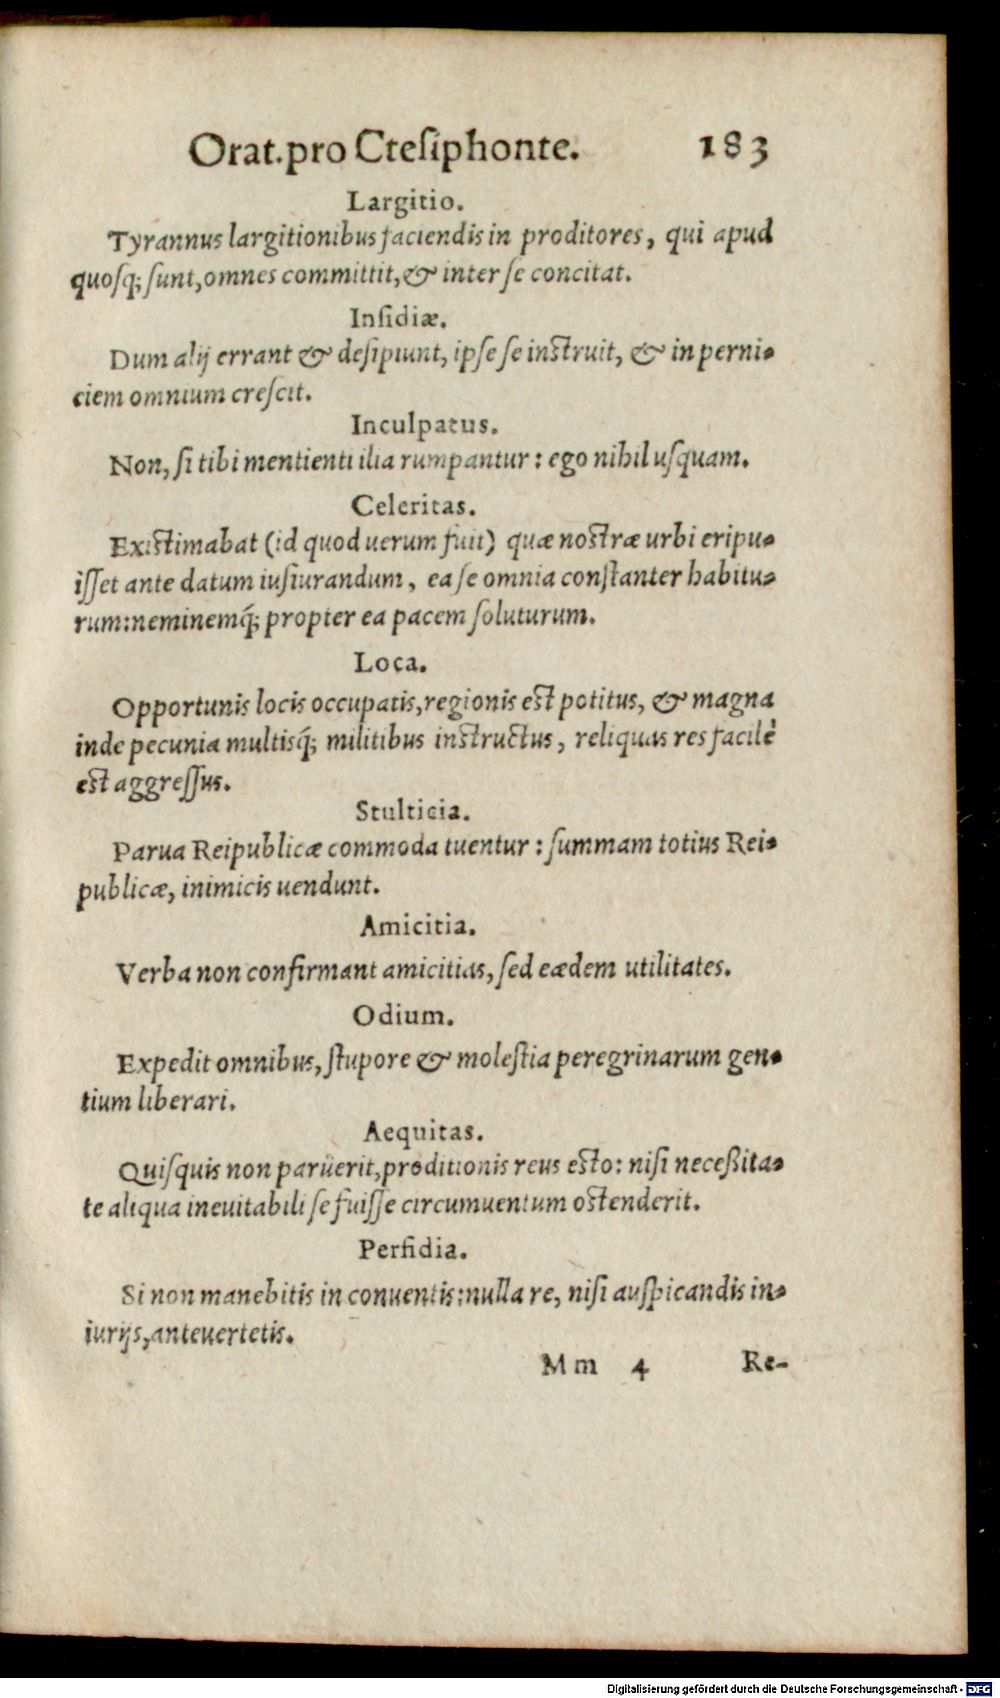 Orat. pro Cteſiphonte. 183
Largitio.
Tyrannus largitionibus faciendis in proditores, qui apud
quoſq; ſunt, omnes committit, & inter ſe concitat.
Inſidiæ.
Dum alij errant & deſipiunt, ipſe ſe inſtruit, & in perni-
ciem omnium creſcit.
Inculpatus.
Non, ſi tibi mentienti ilia rumpantur: ego nihil uſquam.
Celeritas.
Existimabat (id quod uerum fuit) quæ nostræ urbi eripu-
iſſet ante datum iuſiurandum, ea ſe omnia conſtanter habitu-
rum: neminemq́; propter ea pacem ſoluturum.
Loca.
Opportunis locis occupatis, regionis est potitus, & magna
inde pecunia multisq́; militibus instructus, reliquas res facilè
est aggreſſus.
Stulticia.
Parua Reipublicæ commoda tuentur: ſummam totius Rei-
publicæ, inimicis uendunt.
Amicitia.
Verba non confirmant amicitias, ſed eædem utilitates.
Odium.
Expedit omnibus, ſtupore & moleſtia peregrinarum gen-
tium liberari.
Aequitas.
Quiſquis non paruerit, proditionis reus esto: niſi neceßita-
te aliqua ineuitabili ſe fuiſſe circumuentum ostenderit.
Perfidia.
Si non manebitis in conuentis: nulla re, niſi auſpicandis in-
iurijs, anteuertetis.
Mm 4 Re-
Digitalisierung gefördert durch die Deutsche Forschungsgemeinschaft - DFG